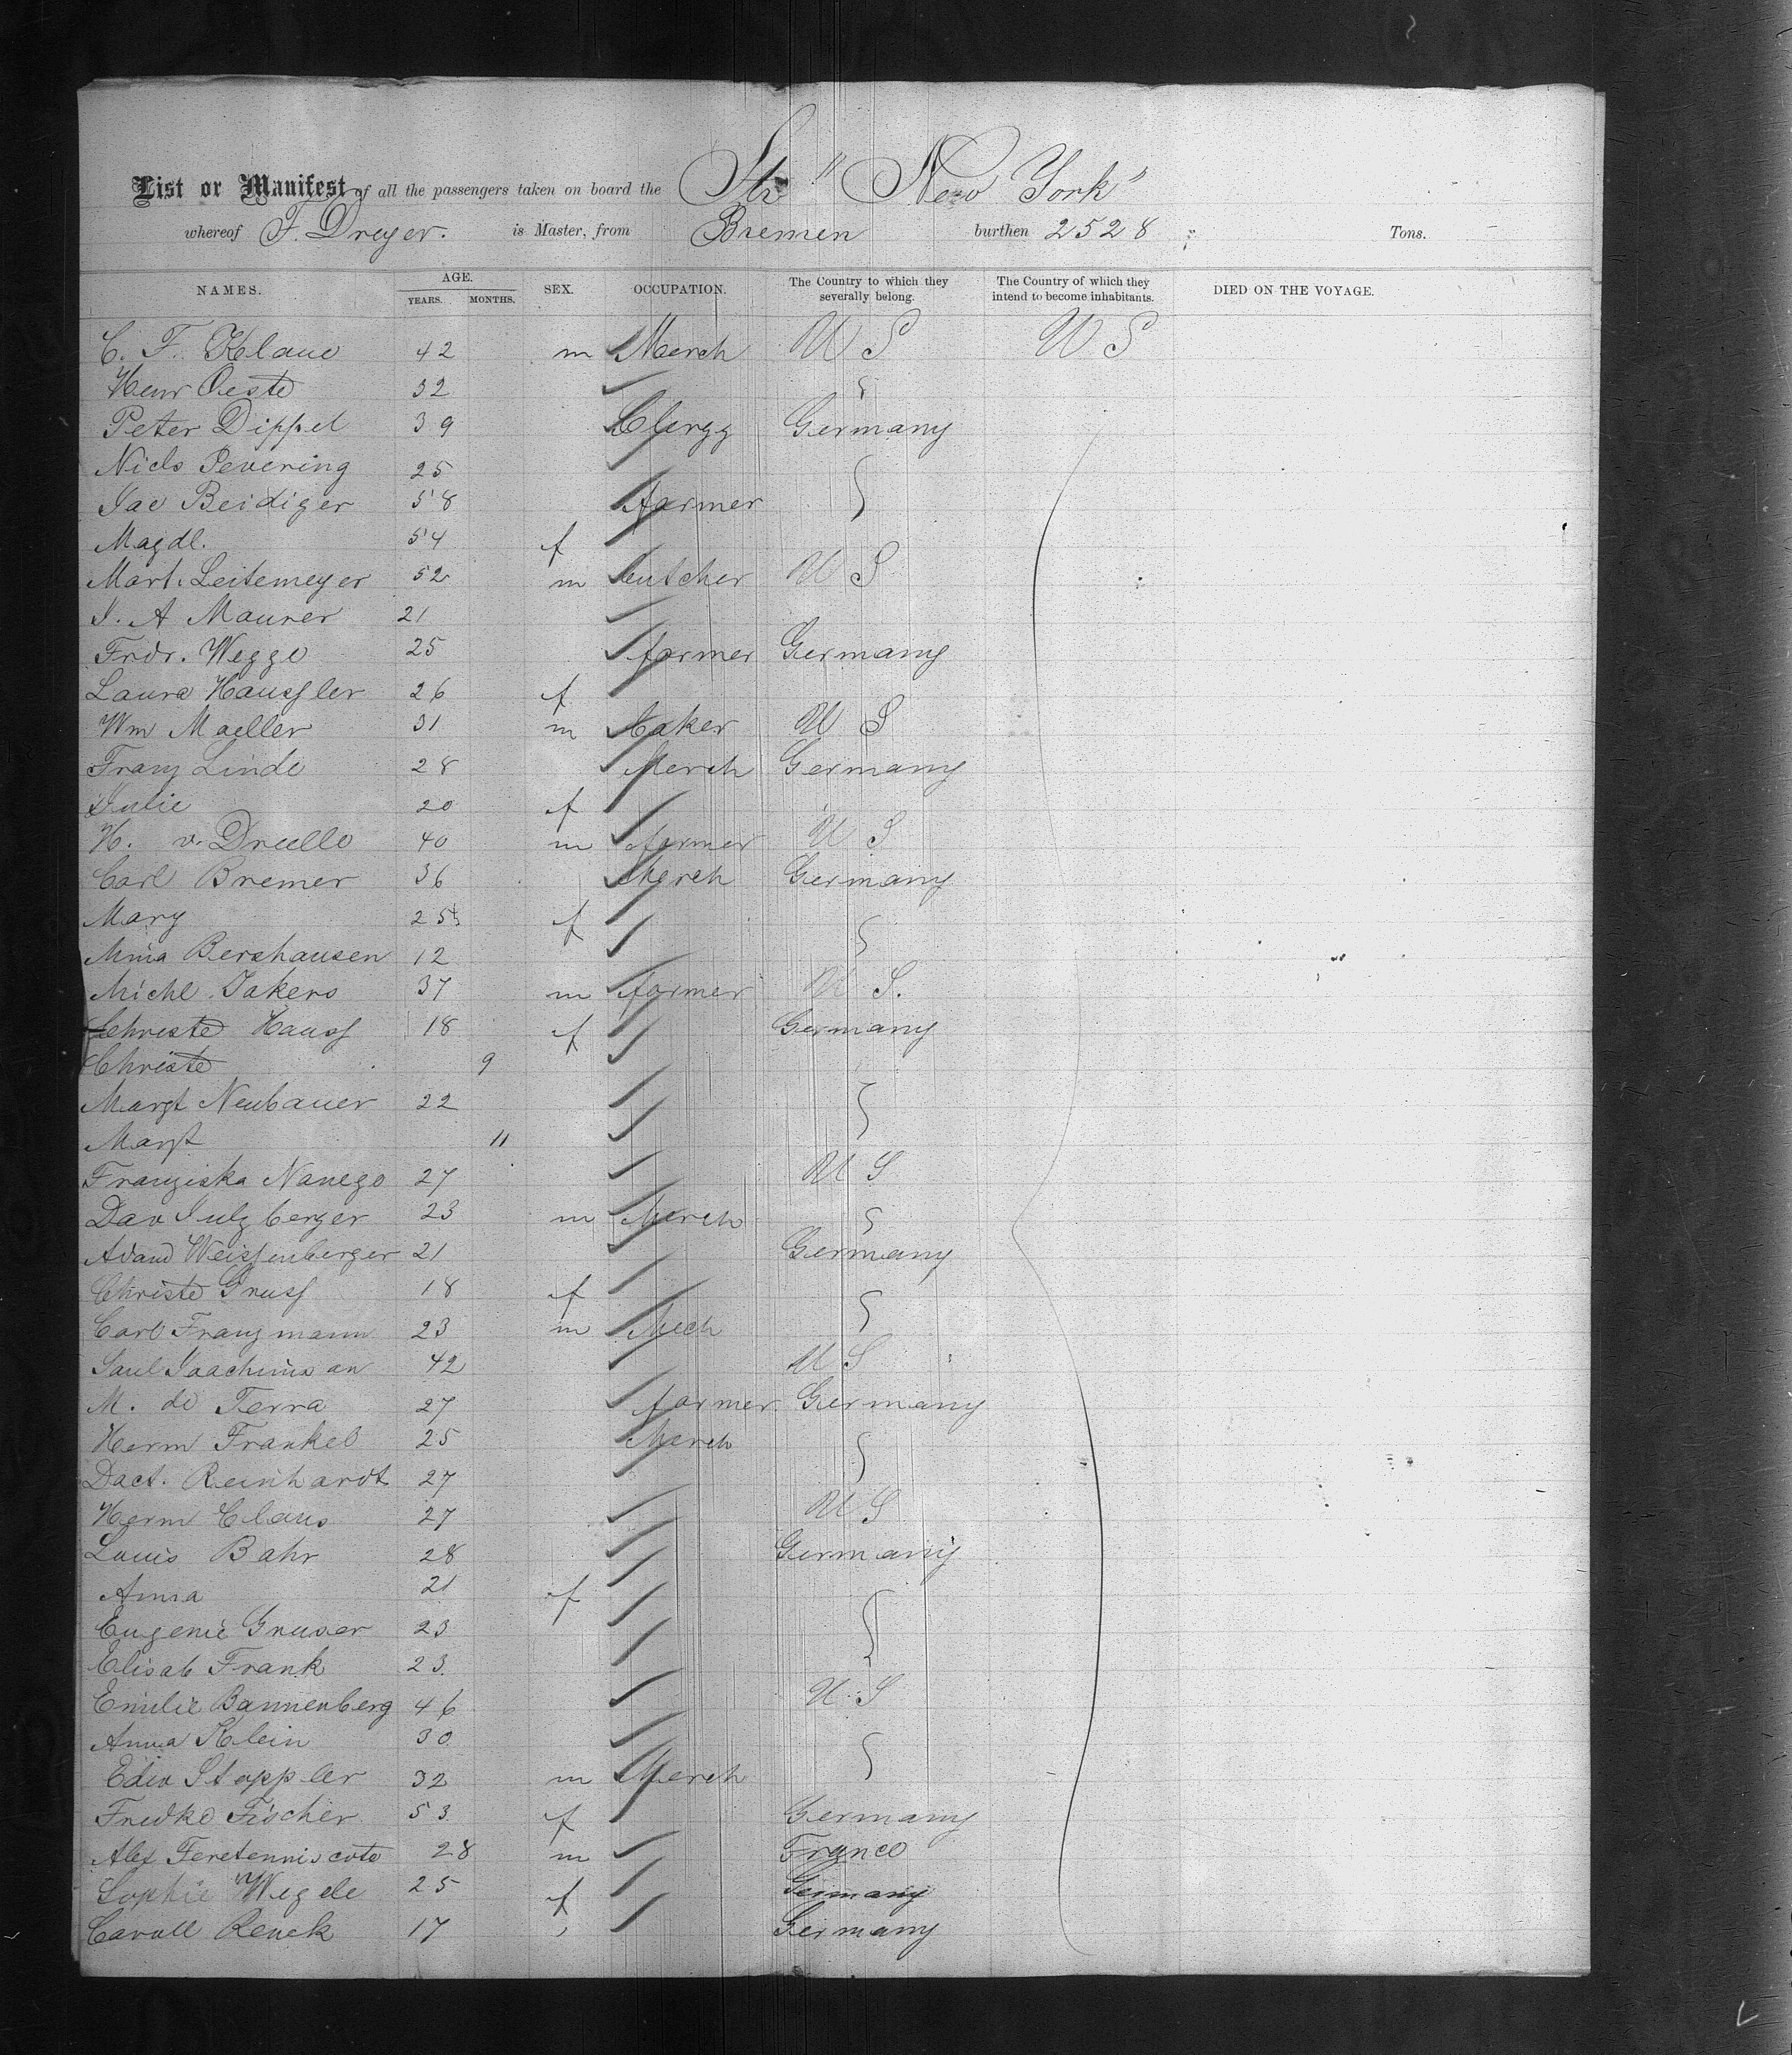 List or Manifest of all the passengers taken on board the Str "New York"
whereof F. Dreyer. is Master, from Bremen burthen 2528 Tons.
NAMES. AGE. YEARS. MONTHS. SEX. OCCUPATION. The Country to which they severally belong. The Country of which they intend to become inhabitants. DIED ON THE VOYAGE.
C. F. Klaue 42 m Merch U S U S
Henr Oeste 32
Peter Dippel 39 Clergy Germany
Niels Pevering 25
Jac Beidiger 58 farmer
Magdl. 54 f
Mart. Leitemeyer 52 m butcher U S
J. A Maurer 21
Frdr. Wegge 25 farmer Germany
Laura Haussler 26 f
Wm Moeller 31 m baker U S
Franz Linde 28 Merch Germany
Julie 20 f
H. v. Druello 40 m farmer U S
Carl Bremer 36 Merch Germany
Mary 25 f
Mina Bershausen 12
Michl Jakers 37 m farmer U S.
Christe Hauss 18 f Germany
Christe 9
Margt Neubauer 22
Margt 11
Franziska Nanego 27 U S
Dav Sulzberger 23 m Merch
Weissenberger 21 Germany
Christe Gruss 18 f
Carl Franzmann 23 m Mech
Saul Joachimsan 42 U S
M. de Terra 27 farmer Germany
Herm Frankel 25 Merch
Dact. Reinhardt 27
Herm Claus 27 U S
Louis Bahr 28 Germany
Anna 21 f
Eugenie Gruser 23
Elisab Frank 23
Emilie Bannenberg 46 U S
Anna Klein 30
Edw Stoppler 32 m Merch
Fredke Fischer 53 f Germany
Alex 28 m France
Sophie Wegele 25 f Germany
Caroll Renck 17 Germany